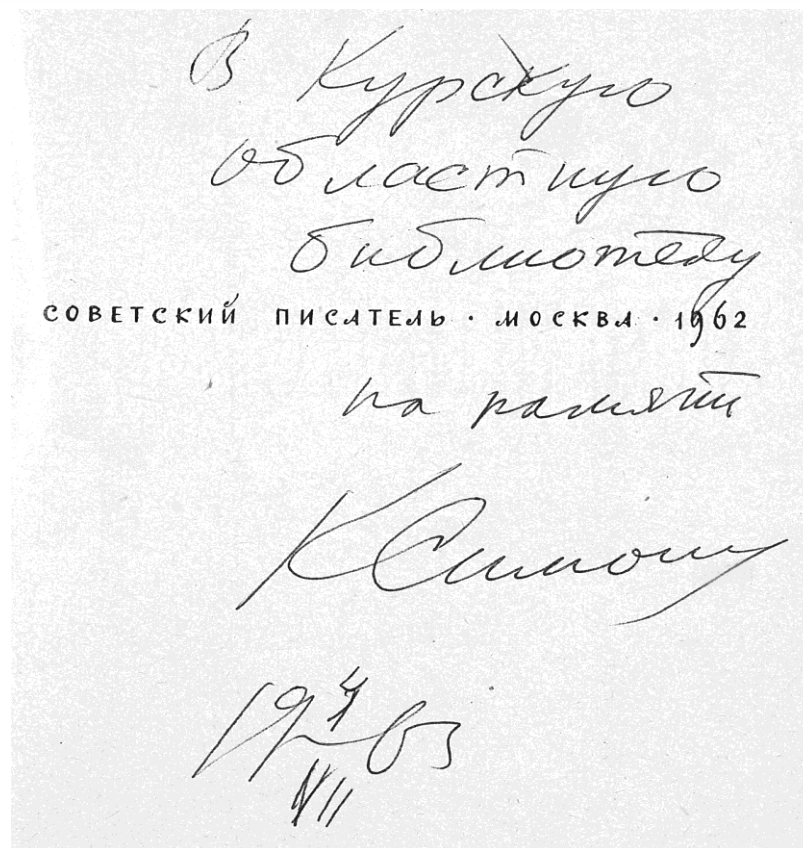 В Курскую
областную
библиотеку
СОВЕТСКИЙ ПИСАТЕЛЬ · МОСКВА · 1962
на память
К Симонов
19 63
VII